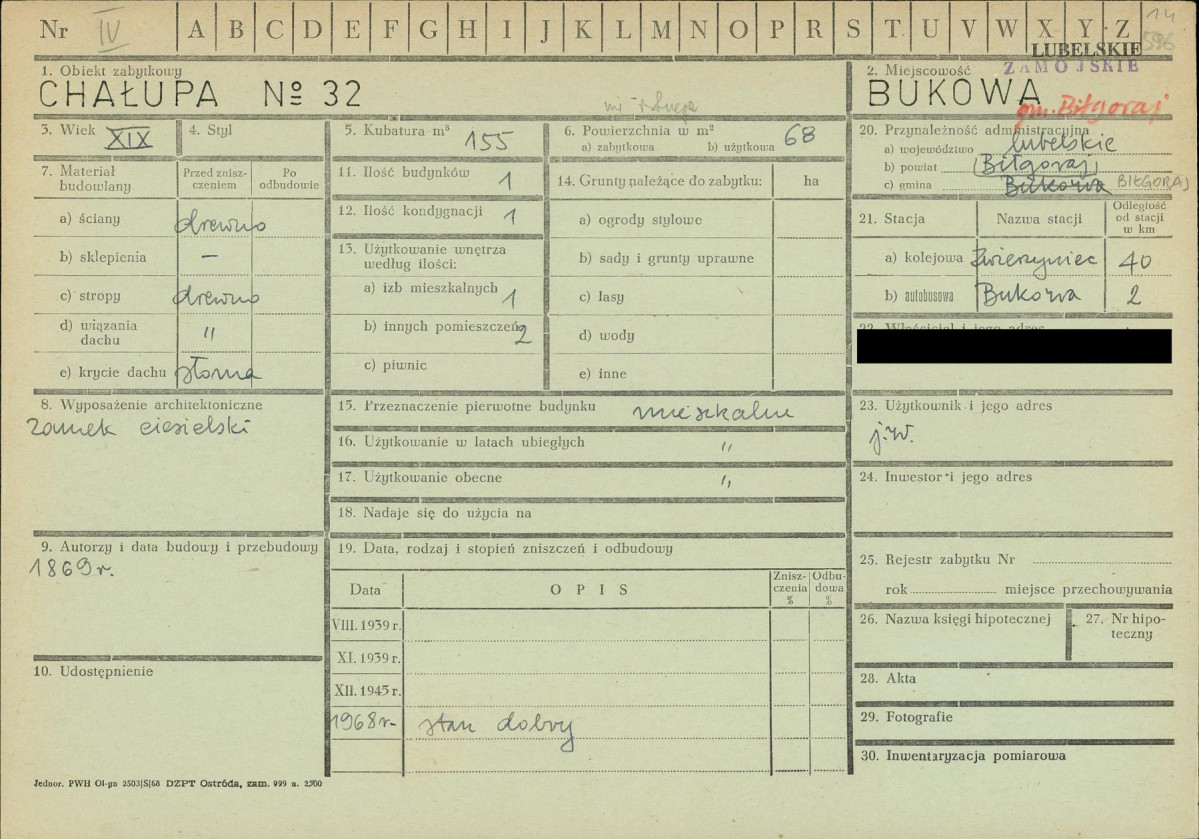 Nr IV A B C D E F G H I J K L M N O P R S T U V W X Y Z 14
596
LUBELSKIE
ZAMOJSKIE
1. Obiekt zabytkowy
CHAŁUPA Nº 32
2. Miejscowość
BUKOWA
gm. Biłgoraj
3. Wiek XIX
4. Styl
5. Kubatura m³ 155
6. Powierzchnia w m² 68
a) zabytkowa b) użytkowa
7. Materiał budowlany
Przed zniszczeniem
Po odbudowie
a) ściany drewno
b) sklepienia —
c) stropy drewno
d) wiązania dachu "
e) krycie dachu słoma
8. Wyposażenie architektoniczne
zamek ciesielski
9. Autorzy i data budowy i przebudowy
1869 r.
10. Udostępnienie
11. Ilość budynków 1
12. Ilość kondygnacji 1
13. Użytkowanie wnętrza
według ilości:
a) izb mieszkalnych 1
b) innych pomieszczeń 2
c) piwnic
14. Grunty należące do zabytku: ha
a) ogrody stylowe
b) sady i grunty uprawne
c) lasy
d) wody
e) inne
15. Przeznaczenie pierwotne budynku mieszkalne
16. Użytkowanie w latach ubiegłych "
17. Użytkowanie obecne "
18. Nadaje się do użycia na
19. Data, rodzaj i stopień zniszczeń i odbudowy
Data OPIS Zniszczenia % Odbudowa %
VIII. 1939 r.
XI. 1939 r.
XII. 1945 r.
1968 r. stan dobry
20. Przynależność administracyjna
a) województwo lubelskie
b) powiat (Biłgoraj)
c) gmina Bukowa BIŁGORAJ
21. Stacja Nazwa stacji Odległość od stacji w km
a) kolejowa Zwierzyniec 40
b) autobusowa Bukowa 2
22. Właściciel i jego adres
23. Użytkownik i jego adres
j.w.
24. Inwestor i jego adres
25. Rejestr zabytku Nr
rok miejsce przechowywania
26. Nazwa księgi hipotecznej
27. Nr hipoteczny
28. Akta
29. Fotografie
30. Inwentaryzacja pomiarowa
Jednor. PWH Ol-gn 2503|S|68 DZPT Ostróda, zam. 999 n. 2.500